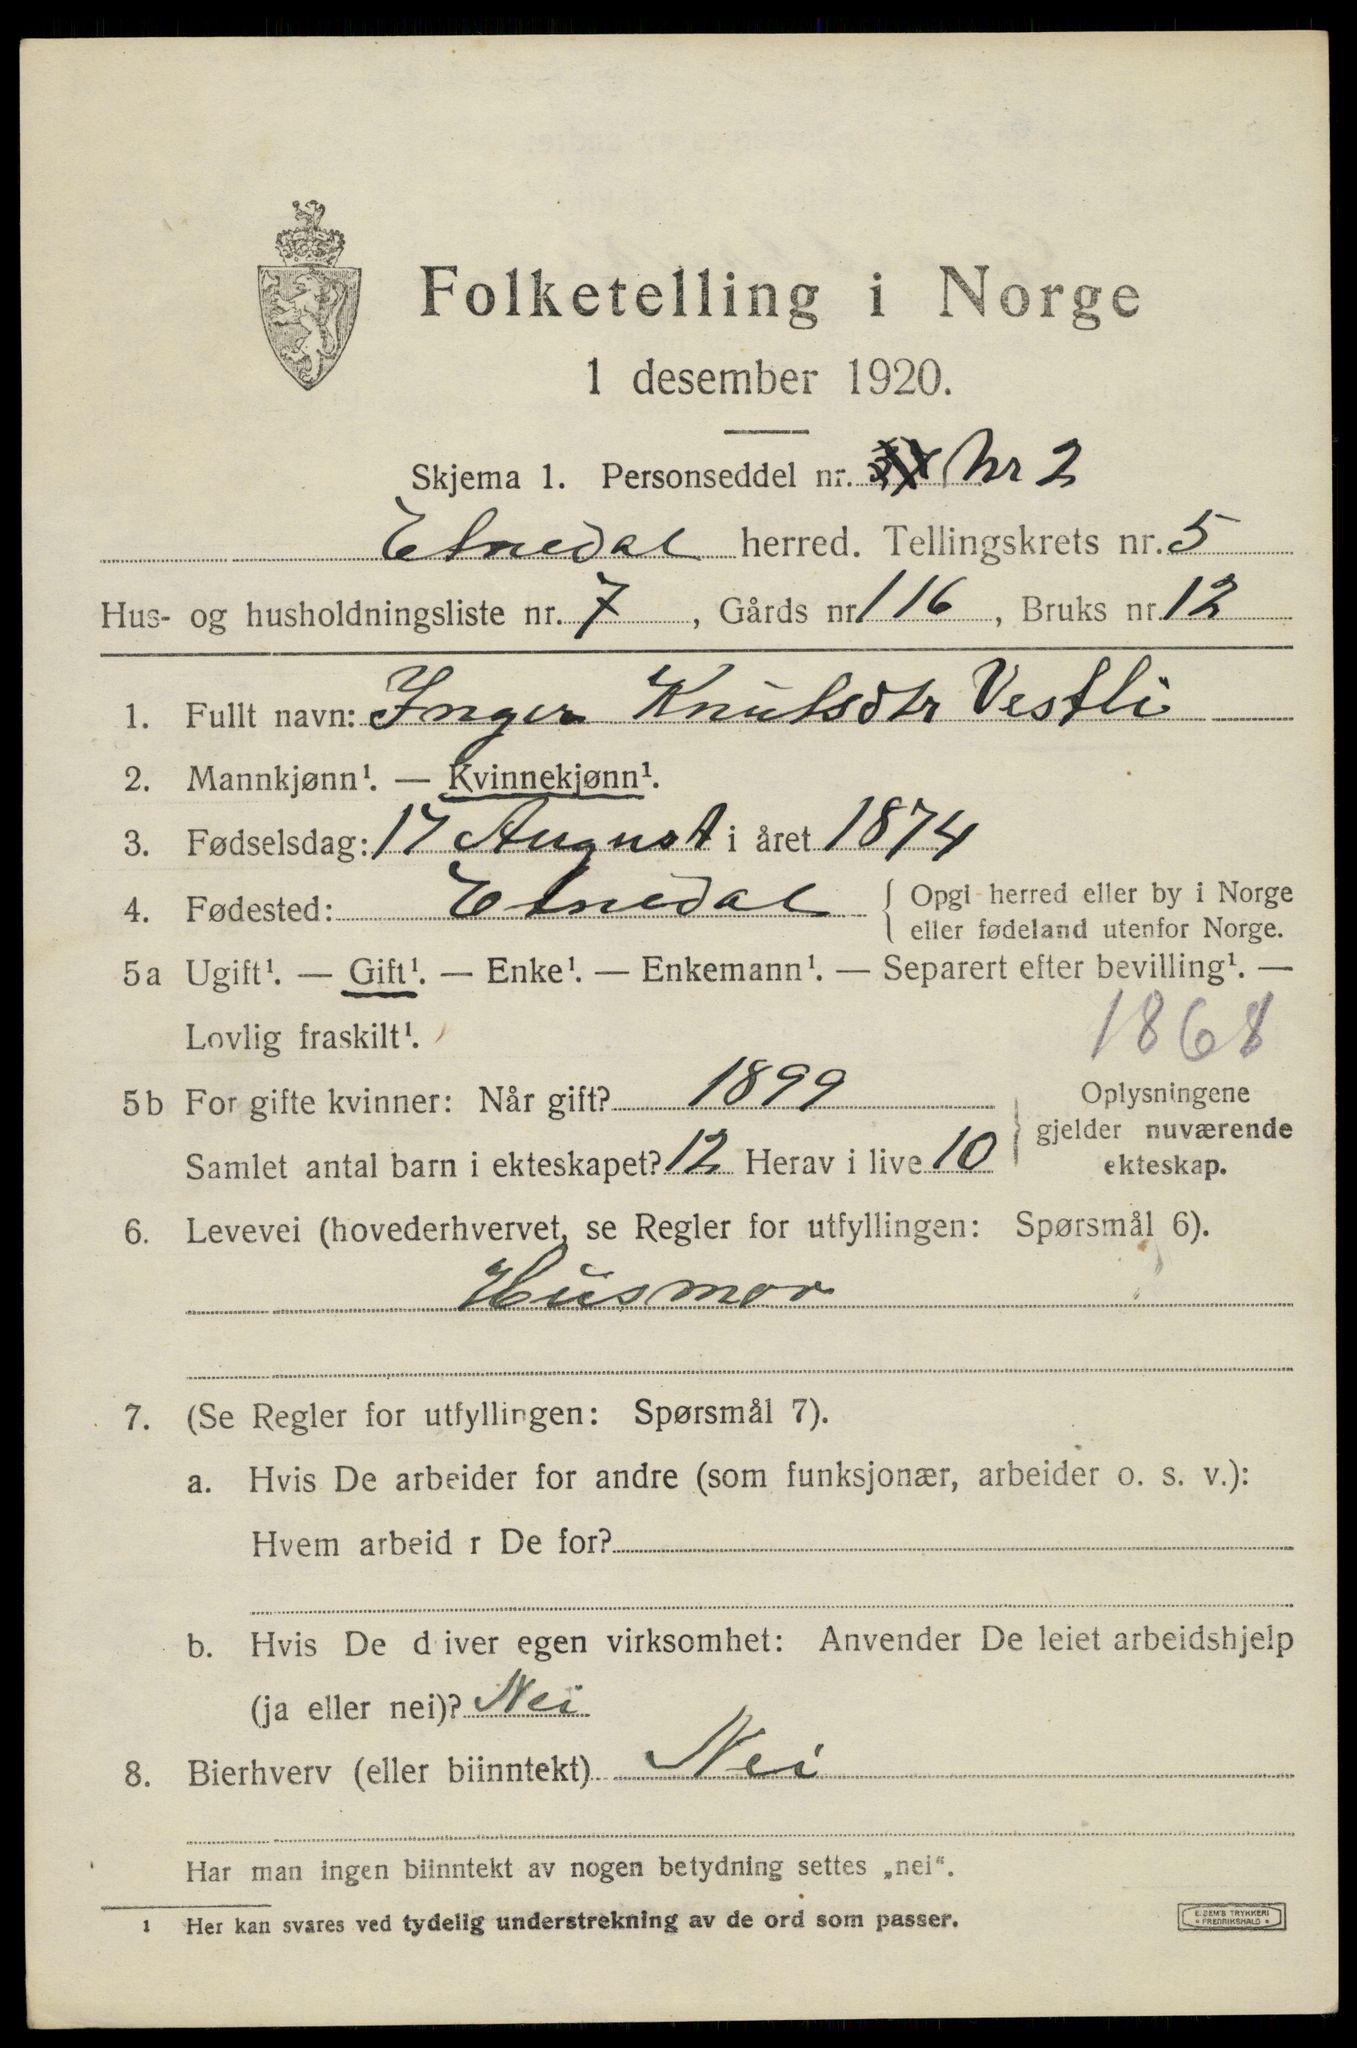 Folketelling i Norge
1 desember 1920.
Skjema 1. Personseddel nr. Nr 2
Etnedal herred. Tellingskrets nr. 5
Hus- og husholdningsliste nr. 7, Gårds nr 116, Bruks nr. 12
1. Fullt navn: Inger Knutsdtr Vestli
2. Mannkjønn¹. — Kvinnekjønn¹.
3. Fødselsdag: 17 August i året 1874
4. Fødested: Etnedal { Opgi herred eller by i Norge
eller fødeland utenfor Norge.
5a Ugift¹. — Gift¹. — Enke¹. — Enkemann¹. — Separert efter bevilling¹. —
Lovlig fraskilt¹.
1868
5b For gifte kvinner: Når gift? 1899
Samlet antal barn i ekteskapet? 12 Herav i live 10
} Oplysningene
gjelder nuværende
ekteskap.
6. Levevei (hovederhvervet, se Regler for utfyllingen: Spørsmål 6).
Husmor
7. (Se Regler for utfyllingen: Spørsmål 7).
a. Hvis De arbeider for andre (som funksjonær, arbeider o. s. v.):
Hvem arbeid r De for?
b. Hvis De d iver egen virksomhet: Anvender De leiet arbeidshjelp
(ja eller nei)? Nei
8. Bierhverv (eller biinntekt) Nei
Har man ingen biinntekt av nogen betydning settes „nei“.
1 Her kan svares ved tydelig understrekning av de ord som passer.
E. SEM'S TRYKKERI
* FREDRIKSHALD *